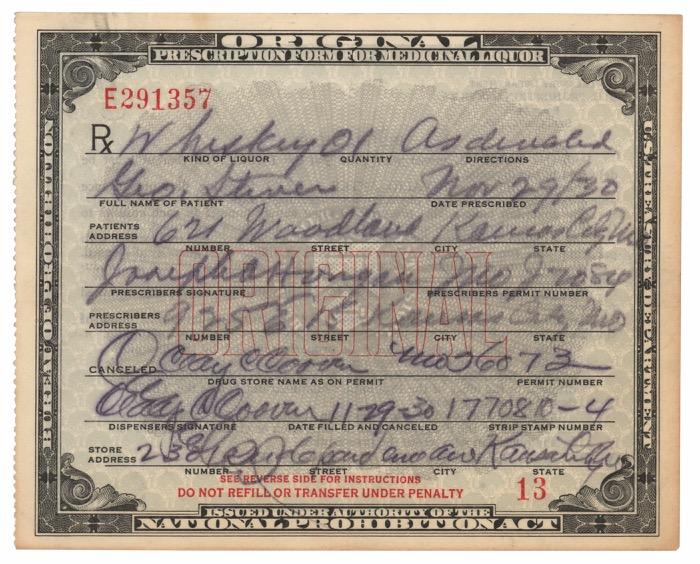 ORIGINAL
PRESCRIPTION FORM FOR MEDICINAL LIQUOR
E291357
Rx Whiskey O1 As directed
KIND OF LIQUOR QUANTITY DIRECTIONS
Geo. Nov 29/30
FULL NAME OF PATIENT DATE PRESCRIBED
PATIENTS ADDRESS 621 Woodland Kansas City Mo
NUMBER STREET CITY STATE
Joseph Mo
PRESCRIBERS SIGNATURE PRESCRIBERS PERMIT NUMBER
PRESCRIBERS ADDRESS Kansas City Mo
NUMBER STREET CITY STATE
CANCELED Mo 6073
DRUG STORE NAME AS ON PERMIT PERMIT NUMBER
11-29-30 1770810-4
DISPENSERS SIGNATURE DATE FILLED AND CANCELED STRIP STAMP NUMBER
STORE ADDRESS Kansas City Mo
NUMBER STREET CITY STATE
SEE REVERSE SIDE FOR INSTRUCTIONS
DO NOT REFILL OR TRANSFER UNDER PENALTY 13
ISSUED UNDER AUTHORITY OF THE
NATIONAL PROHIBITION ACT
BUREAU OF PROHIBITION
U.S. TREASURY DEPARTMENT
ORIGINAL